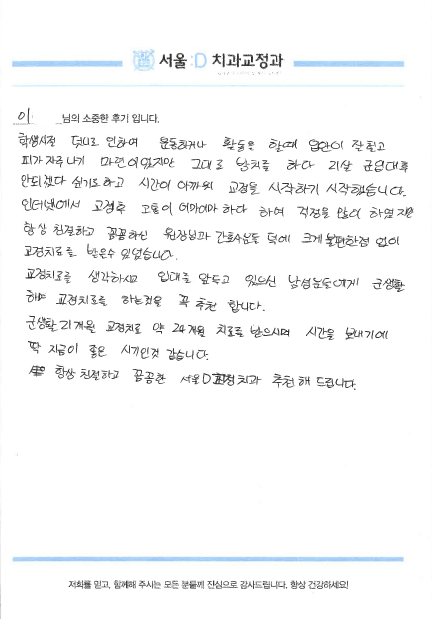 서울:D 치과교정과
이 님의 소중한 후기 입니다.
학생시절 덧니로 인하여 운동하거나 활동을 할때 입안이 잘 헐고
피가 자주나기 마련이었지만 그대로 방치를 하다 21살 군입대후
안되겠다 싶기도하고 시간이 아까워 교정을 시작하기 시작했습니다.
인터넷에서 교정후 고통이 어마어마 하다 하여 걱정을 많이 하였지만
항상 친절하고 꼼꼼하신 원장님과 간호사분들 덕에 크게 불편한점 없이
교정치료를 받을수 있었습니다.
교정치료를 생각하시고 입대를 앞두고 있으신 남성분들에게 군생활
하며 교정치료를 하는것을 꼭 추천 합니다.
군생활 21개월 교정치료 약 24개월 치료를 받으시며 시간을 보내기에
딱 지금이 좋은 시기인것 같습니다.
항상 친절하고 꼼꼼한 서울D 치과 추천해 드립니다.
저희를 믿고, 함께해 주시는 모든 분들께 진심으로 감사드립니다. 항상 건강하세요!